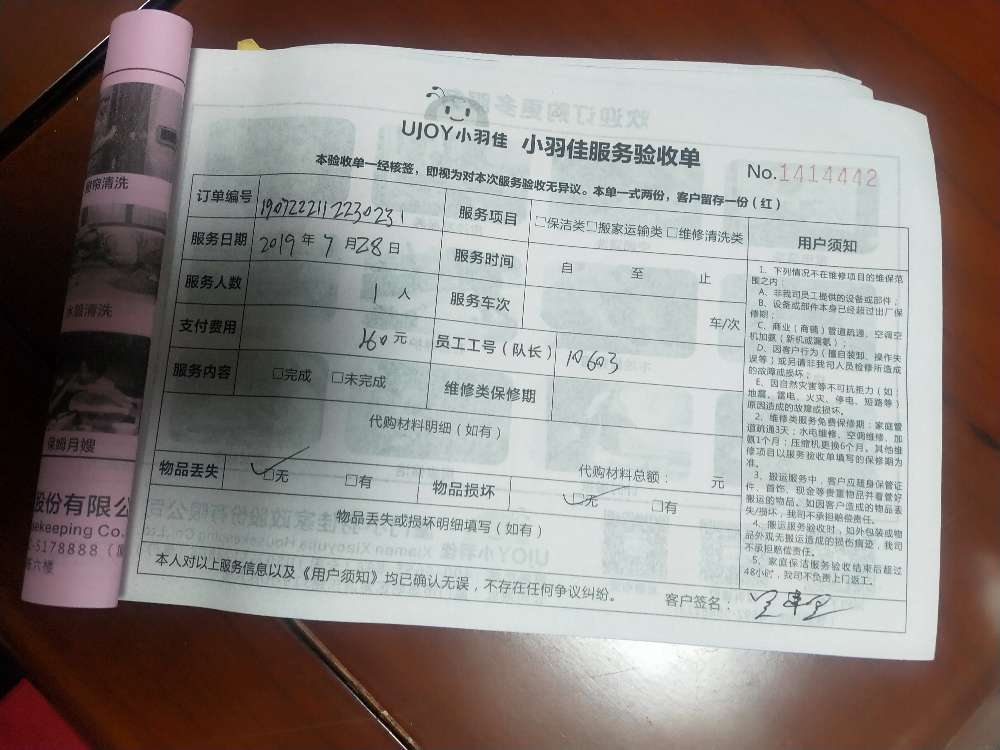 UJOY小羽佳 小羽佳服务验收单
No.1414442
本验收单一经核签，即视为对本次服务验收无异议。本单一式两份，客户留存一份（红）
订单编号 190722211223023 1 服务项目 □保洁类□搬家运输类□维修清洗类
服务日期 2019年7月28日 服务时间 自 至 止
服务人数 1人 服务车次 车/次
支付费用 260元 员工工号（队长） 10603
服务内容 □完成 □未完成 维修类保修期
代购材料明细（如有）
代购材料总额： 元
物品丢失 □无 □有 物品损坏 □无 □有
物品丢失或损坏明细填写（如有）
本人对以上服务信息以及《用户须知》均已确认无误，不存在任何争议纠纷。 客户签名：
用户须知
1、下列情况不在维修项目的维保范
围之内：
A、非我司员工提供的设备或部件；
B、设备或部件本身已经超过出厂保
修期；
C、商业（商铺）管道疏通、空调空
机加氨（新机或漏氨）；
D、因客户行为（擅自装卸、操作失
误等）或另请非我司人员检修所造成
的故障或损坏；
E、因自然灾害等不可抗拒力（如：
地震、雷电、火灾、停电、短路等）
原因造成的故障或损坏。
2、维修类服务免费保修期：家庭管
道疏通3天；水电维修、空调维修、加
氨1个月；压缩机更换6个月。其他维
修项目以服务验收单填写的保修期为
准。
3、搬运服务中，客户应随身保管证
件、首饰、现金等贵重物品并看管好
搬运的物品。如因客户造成的物品丢
失/损坏，我司不承担赔偿责任。
4、搬运服务验收时，如外包装或物
品外观无搬运造成的损伤痕迹，我司
不承担赔偿责任。
5、家庭保洁服务验收结束后超过
48小时，我司不负责上门返工。
清洗
水箱清洗
保姆月嫂
股份有限公
sekeeping Co.
-5178888
六楼